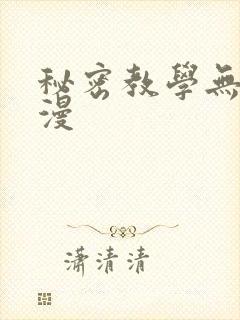 秘密教學無
漫
瀟清清